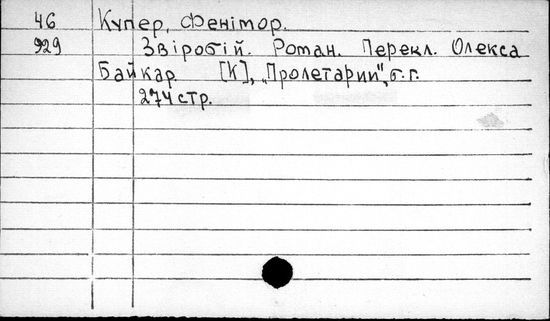 46 Купер, Фенімор.
929 Звіробій. Роман. Перекл. Олекса
Байкар [К], „Пролетарии", б.г.
274 стр.